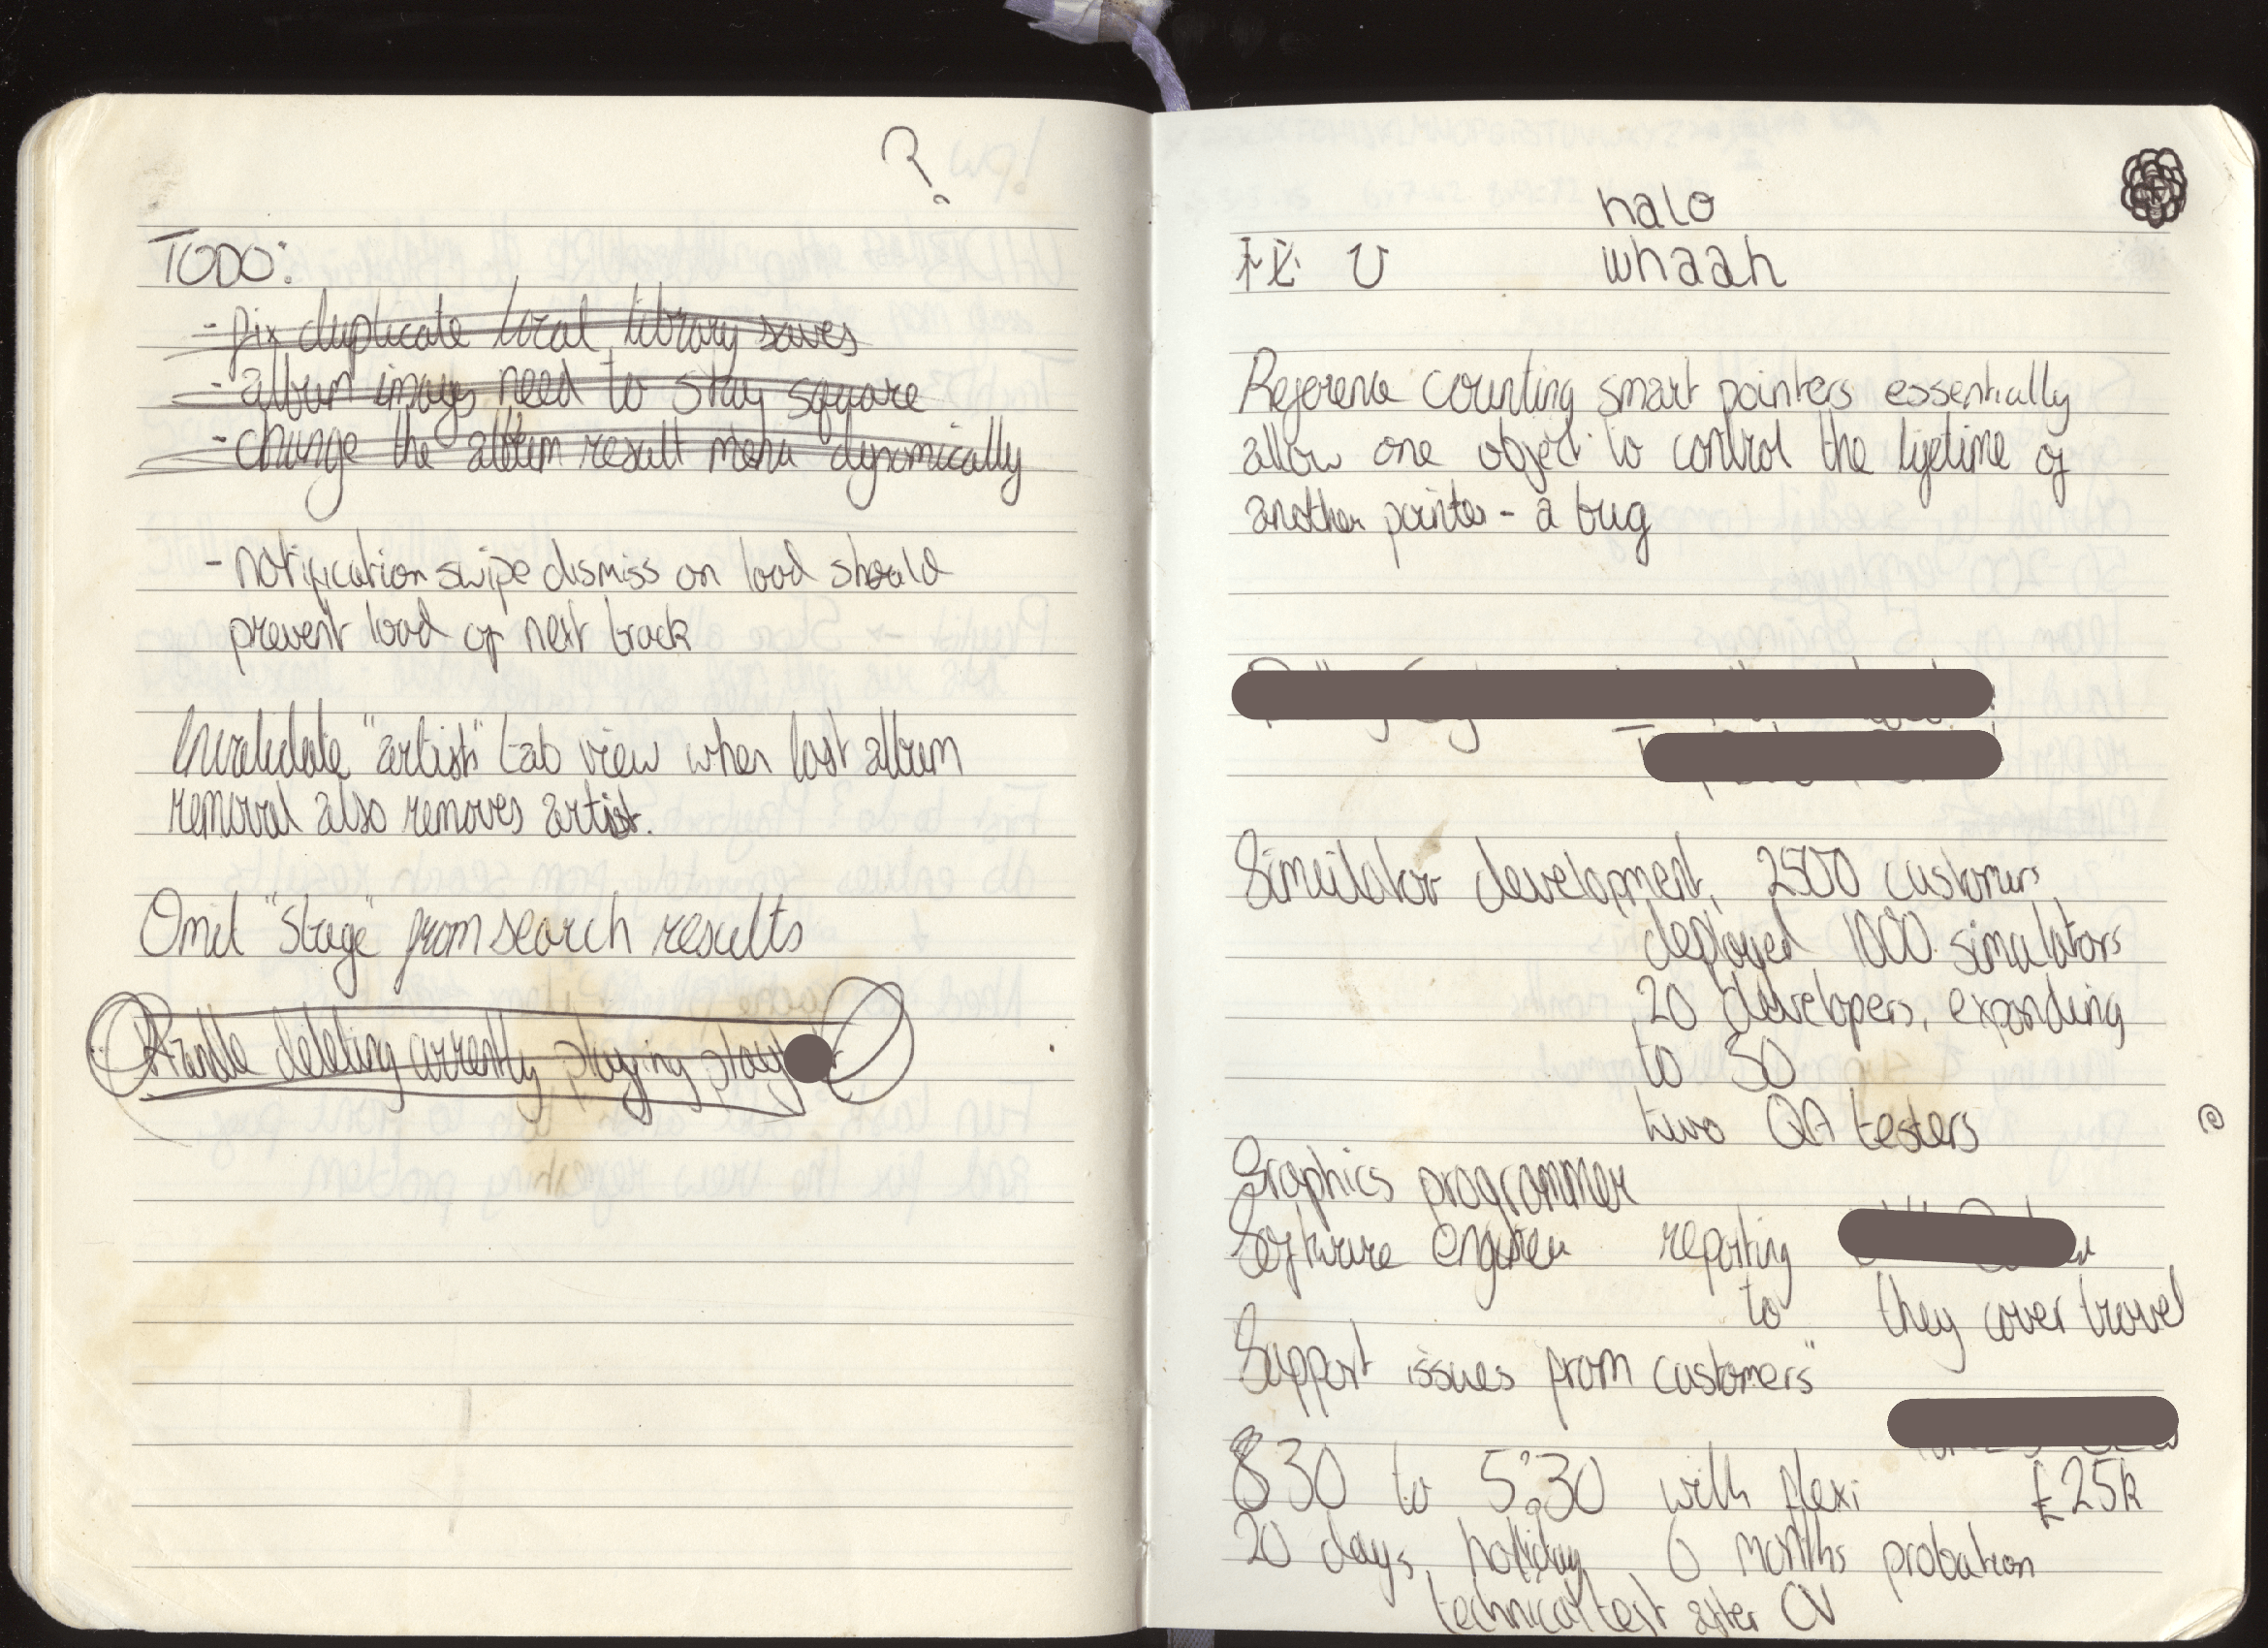 ?
TODO:
- fix duplicate local library saves
- album images need to stay square
- change the album result menu dynamically
- notification swipe dismiss on load should
prevent load of next track
Invalidate "artist" tab view when last album
removal also removes artist.
Omit "Stage" from search results
Handle deleting currently playing
halo
whaah
Reference counting smart pointers essentially
allow one object to control the lifetime of
another pointer - a bug
Simulator development, 2500 customers
deployed 1000 simulators
20 developers, expanding
to 30
two QA testers
Graphics programmer
Software engineer reporting
to they cover travel
Support issues from customers"
830 to 5:30 with flexi £25k
20 days holiday 6 months probation
technical test after CV